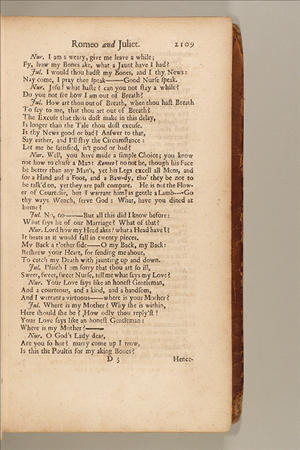 Romeo and Juliet. 2109
Nur. I am a weary, give me leave a while;
Fy, how my Bones ake, what a Jaunt have I had?
Jul. I would thou hadst my Bones, and I thy News:
Nay come, I pray thee speak——Good Nurse speak.
Nur. Jesu! what haste? can you not stay a while?
Do you not see how I am out of Breath?
Jul. How art thou out of Breath, when thou hast Breath
To say to me, that thou art out of Breath?
The Excuse that thou dost make in this delay,
Is longer than the Tale thou dost excuse.
Is thy News good or bad? Answer to that,
Say either, and I'll stay the Circumstance:
Let me be satisfied, is't good or bad?
Nur. Well, you have made a simple Choice; you know
not how to chuse a Man: Romeo? no not he, though his Face
be better than any Man's, yet his Legs excell all Mens, and
for a Hand and a Foot, and a Baw-dy, tho' they be not to
be talk'd on, yet they are past compare. He is not the Flow-
er of Courtesie, but I warrant him as gentle a Lamb—Go
thy ways Wench, serve God: What, have you dined at
home?
Jul. No, no——But all this did I know before:
What says he of our Marriage? What of that?
Nur. Lord how my Head akes! what a Head have I?
It beats as it would fall in twenty pieces.
My Back a t'other side——O my Back, my Back:
Beshrew your Heart, for sending me about,
To catch my Death with jaunting up and down.
Jul. I'faith I am sorry that thou art so ill,
Sweet, sweet, sweet Nurse, tell me what says my Love?
Nur. Your Love says like an honest Gentleman,
And a courteous, and a kind, and a handsom,
And I warrant a virtuous——where is your Mother?
Jul. Where is my Mother? Why she is within,
Here should she be? How odly thou reply'st!
Your Love says like an honest Gentleman:
Where is my Mother?———
Nur. O God's Lady dear,
Are you so hot? marry come up I trow,
Is this the Poultis for my aking Bones?
D 3 Hence-